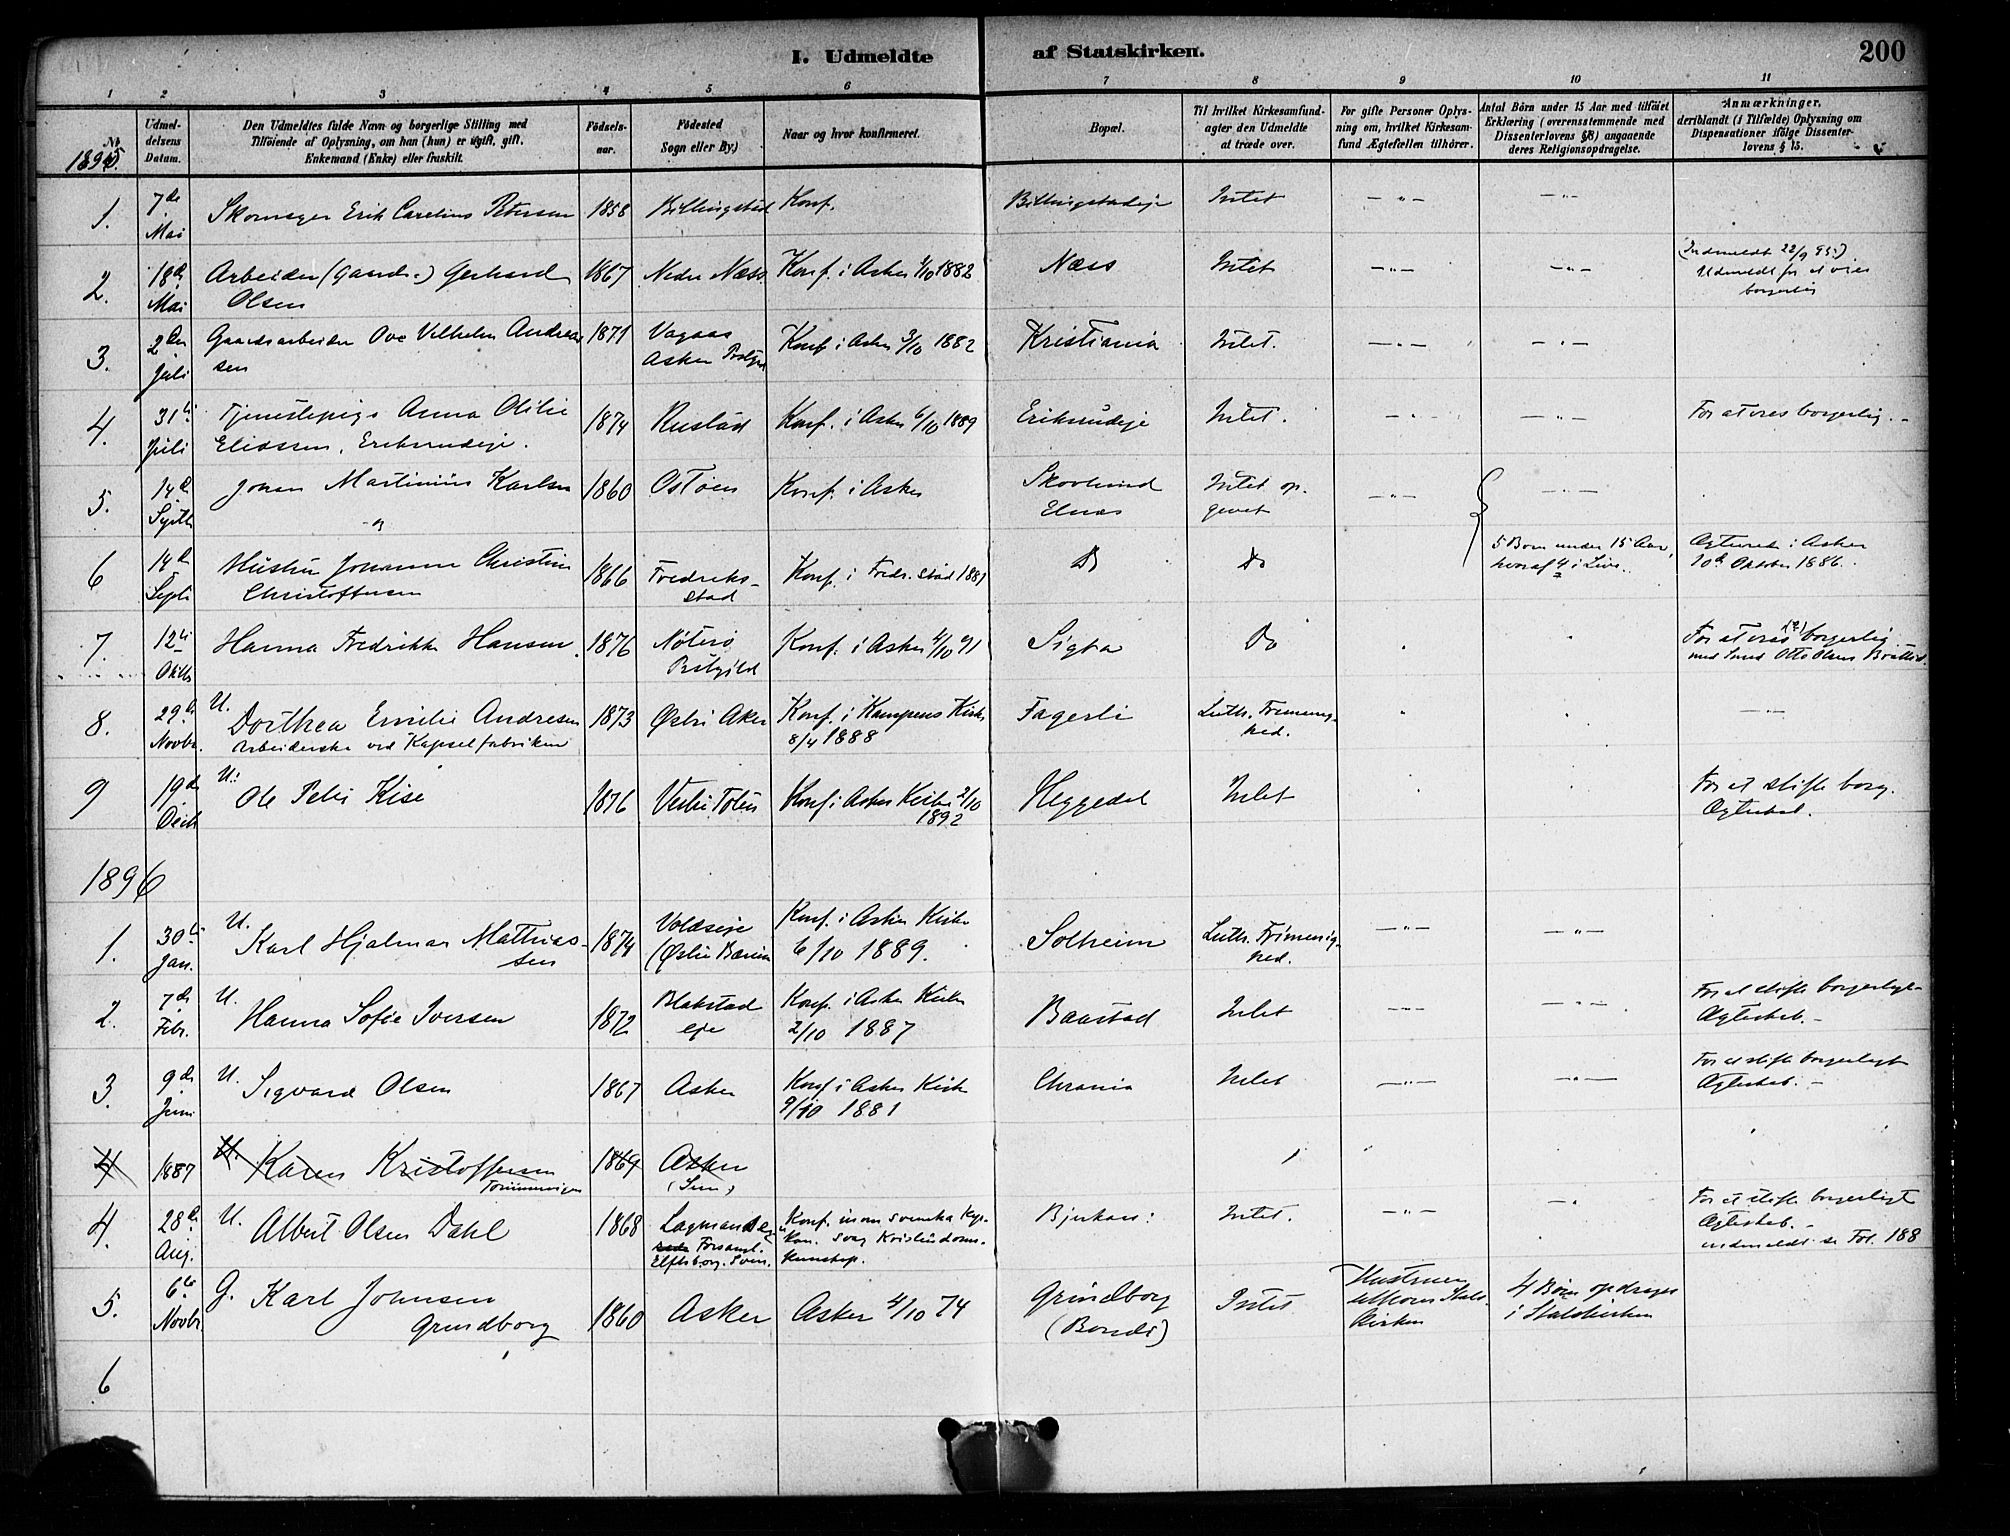 I. Udmeldte af Statskirken. 200
1 2 3 4 5 6 7 8 9 10 11
Nr. Udmeldelsens Datum. Den Udmeldtes fulde Navn og borgerlige Stilling med Tilføiende af Oplysning, om han (hun) er ugift, gift, Enkemand (Enke) eller fraskilt. Fødselsaar. Fødested Sogn eller By.) Naar og hvor konfirmeret. Bopæl. Til hvilket Kirkesamfund agter den Udmeldte at træde over. For gifte Personer Oplysning om, hvilket Kirkesamfund Ægtefællen tilhører. Antal Børn under 15 Aar med tilføiet Erklæring (overensstemmende med Dissenterlovens § 8) angaaende deres Religionsopdragelse. Anmærkninger, deriblandt (i Tilfælde) Oplysning om Dispensationer ifølge Dissenterlovens § 15.
1895.
1. 7de Mai Skomager Erik Carelius Petersen 1858 Billingstad Konf. Billingstadeje Intet — " — — " —
2. 18de Mai Arbeider (Gaards-) Gerhard Olsen 1867 Nedre Næss Konf. i Asker 1/10 1882 Næss Intet — " — — " — (Indmeldt 22/9 95.) Udmeldt for at vies borgerlig
3. 2den Juli Gaardsarbeider Ove Vilhelm Andreassen 1871 Vagaas Asker Prstgjd Konf i Asker 3/10 1882 Kristiania Intet. — " — — " —
4. 31te Juli Tjenestepige Anna Otilie Eliassen, Eriksrudeje. 1874 Rustad Konf. i Asker 6/10 1889 Eriksrudeje Intet. — " — — " — For at vies borgerlig. —
5. 14de Septb Johan Martinius Karlsen og 1860 Ostøen Konf. i Asker Skovlund Elnæs Intet opgivet — " — — " —
6 14de Septb Hustru Johanne Christine Christoffersen 1866 Fredriksstad Konf. i Fredr.stad 1881 Do Do 5 Børn under 15 Aar, hvoraf 4 i Live. Ægteviet i Asker 10de Oktober 1886.
7. 12te Oktb Hanna Fredrikke Hansen. 1876 Nøterø Prstgjeld Konf. i Asker 4/10 91 Do " For at vies (?) borgerlig med Smed Otto Olsen
8. 29de Novbr. U. Dorthea Emilie Andresen Arbeiderske ved Kapselfabriken 1873 Østre Aker Konf. i Kampens Kirke 8/4 1888 Fagerli Luth. Frimenighed. " " — " —
9 19de Decb U. Ole Peter Kise 1876 Vestre Toten Konf i Asker Kirke 2/10 1892 Heggedal Intet " " For at stifte borg. Ægteskab.
1896
1. 30te Jan. U. Karl Hjalmar Mathiassen 1874 Voldseje (Østre Bærum Konf. i Asker Kirke 6/10 1889. Solheim Luth. Frimenighed. — " — — " —
2. 7de Febr. U. Hanna Sofie Iversen 1872 Blakstad eje Konf. i Asker Kirke 2/10 1887 Baastad Intet — " — — " — For at stifte borgerligt Ægteskab. —
3. 9de Juni U. Sigvard Olsen 1867 Asker Konf i Asker Kirke 9/10 1881 Chrania Intet — " — — " — For at stifte borgerligt Ægteskab. —
4 1887 U. Karen Kristoffersen 1869 Asker (Sem)
4. 28de Aug. U. Albert Olsen Dahl 1868 Lagmans Forsaml. Elfsborg. Sver. Konf. inom svenska Kyrkan. svag Kristendomskunskap. Intet. — " — — " For at stifte borgerligt Ægteskab. — indmeldt se Fol. 188
5. 6te Novbr G. Karl Johnsen Grindborg 1860 Asker Asker 4/10 74 Grindborg (Bondi) Intet Hustruen tilhører Statskirken 4 Børn opdrages i Statskirken
6